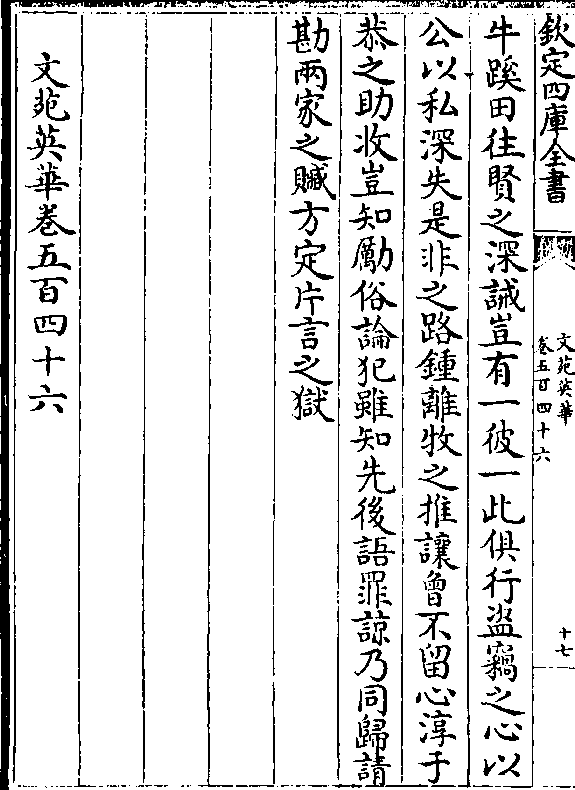 欽定四庫全書
文苑英華
卷五百四十六
十七
牛蹊田往賢之深誡豈有一彼一此俱行盜竊之心以
公以私深失是非之路鍾離牧之推讓曾不留心淳于
恭之助收豈知勵俗論犯雖知先後語罪諒乃同歸請
勘兩家之贓方定片言之獄
文苑英華卷五百四十六